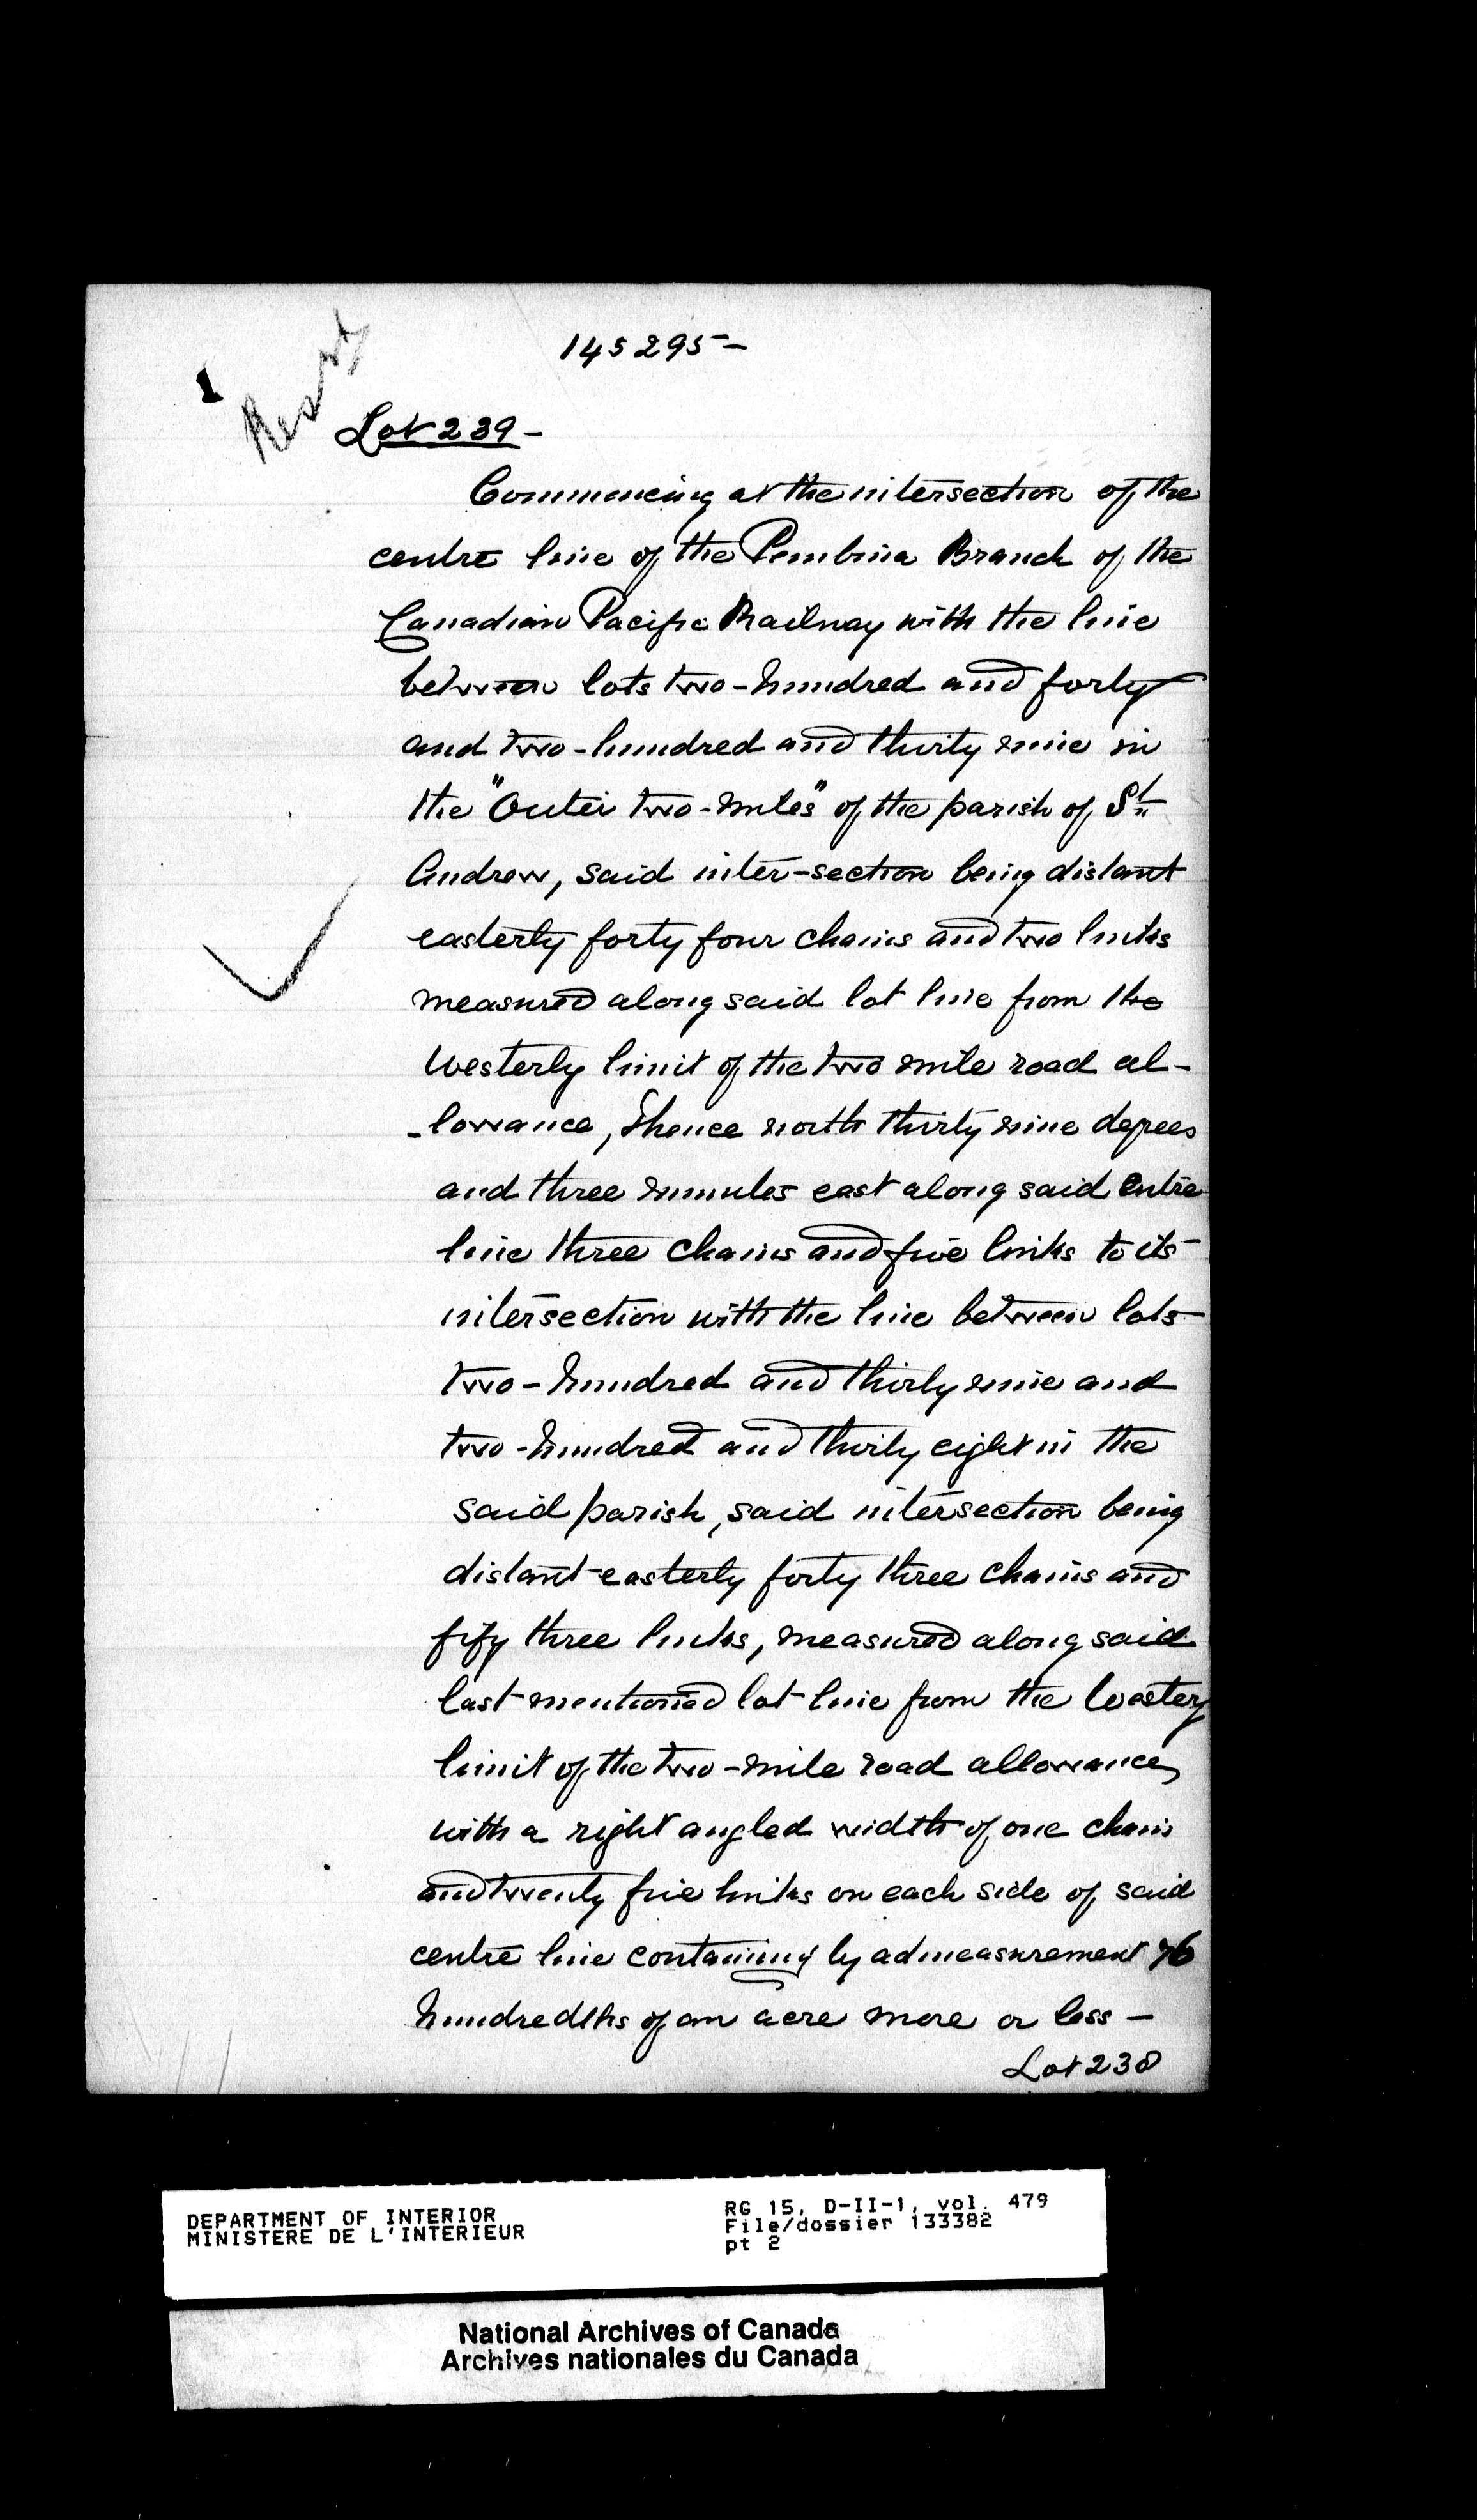 145295-
1
Lot 239-
Commencing at the intersection of the
centre line of the Pembina Branch of the
Canadian Pacific Railway with the line
between lots two-hundred and forty
and two-hundred and thirty nine in
the "Outer two-miles" of the parish of St
Andrew, said inter-section being distant
easterly forty four chains and two links
measured along said lot line from the
Westerly limit of the two mile road al-
-lowance, thence north thirty nine degrees
and three minutes east along said centre
line three chains and five links to its
intersection with the line between lots
two-hundred and thirty nine and
two-hundred and thirty eight in the
said parish, said intersection being
distant easterly forty three chains and
fify three links, measured along said
last mentioned lot line from the Westery
limit of the two-mile road allowance,
with a right angled width of one chain
and twenty five links on each side of said
centre line containing by admeasurement 76
hundredths of an acre more or less-
Lot 238
DEPARTMENT OF INTERIOR
MINISTERE DE L'INTERIEUR
RG 15, D-II-1, vol. 479
File/dossier 133382
pt 2
National Archives of Canada
Archives nationales du Canada